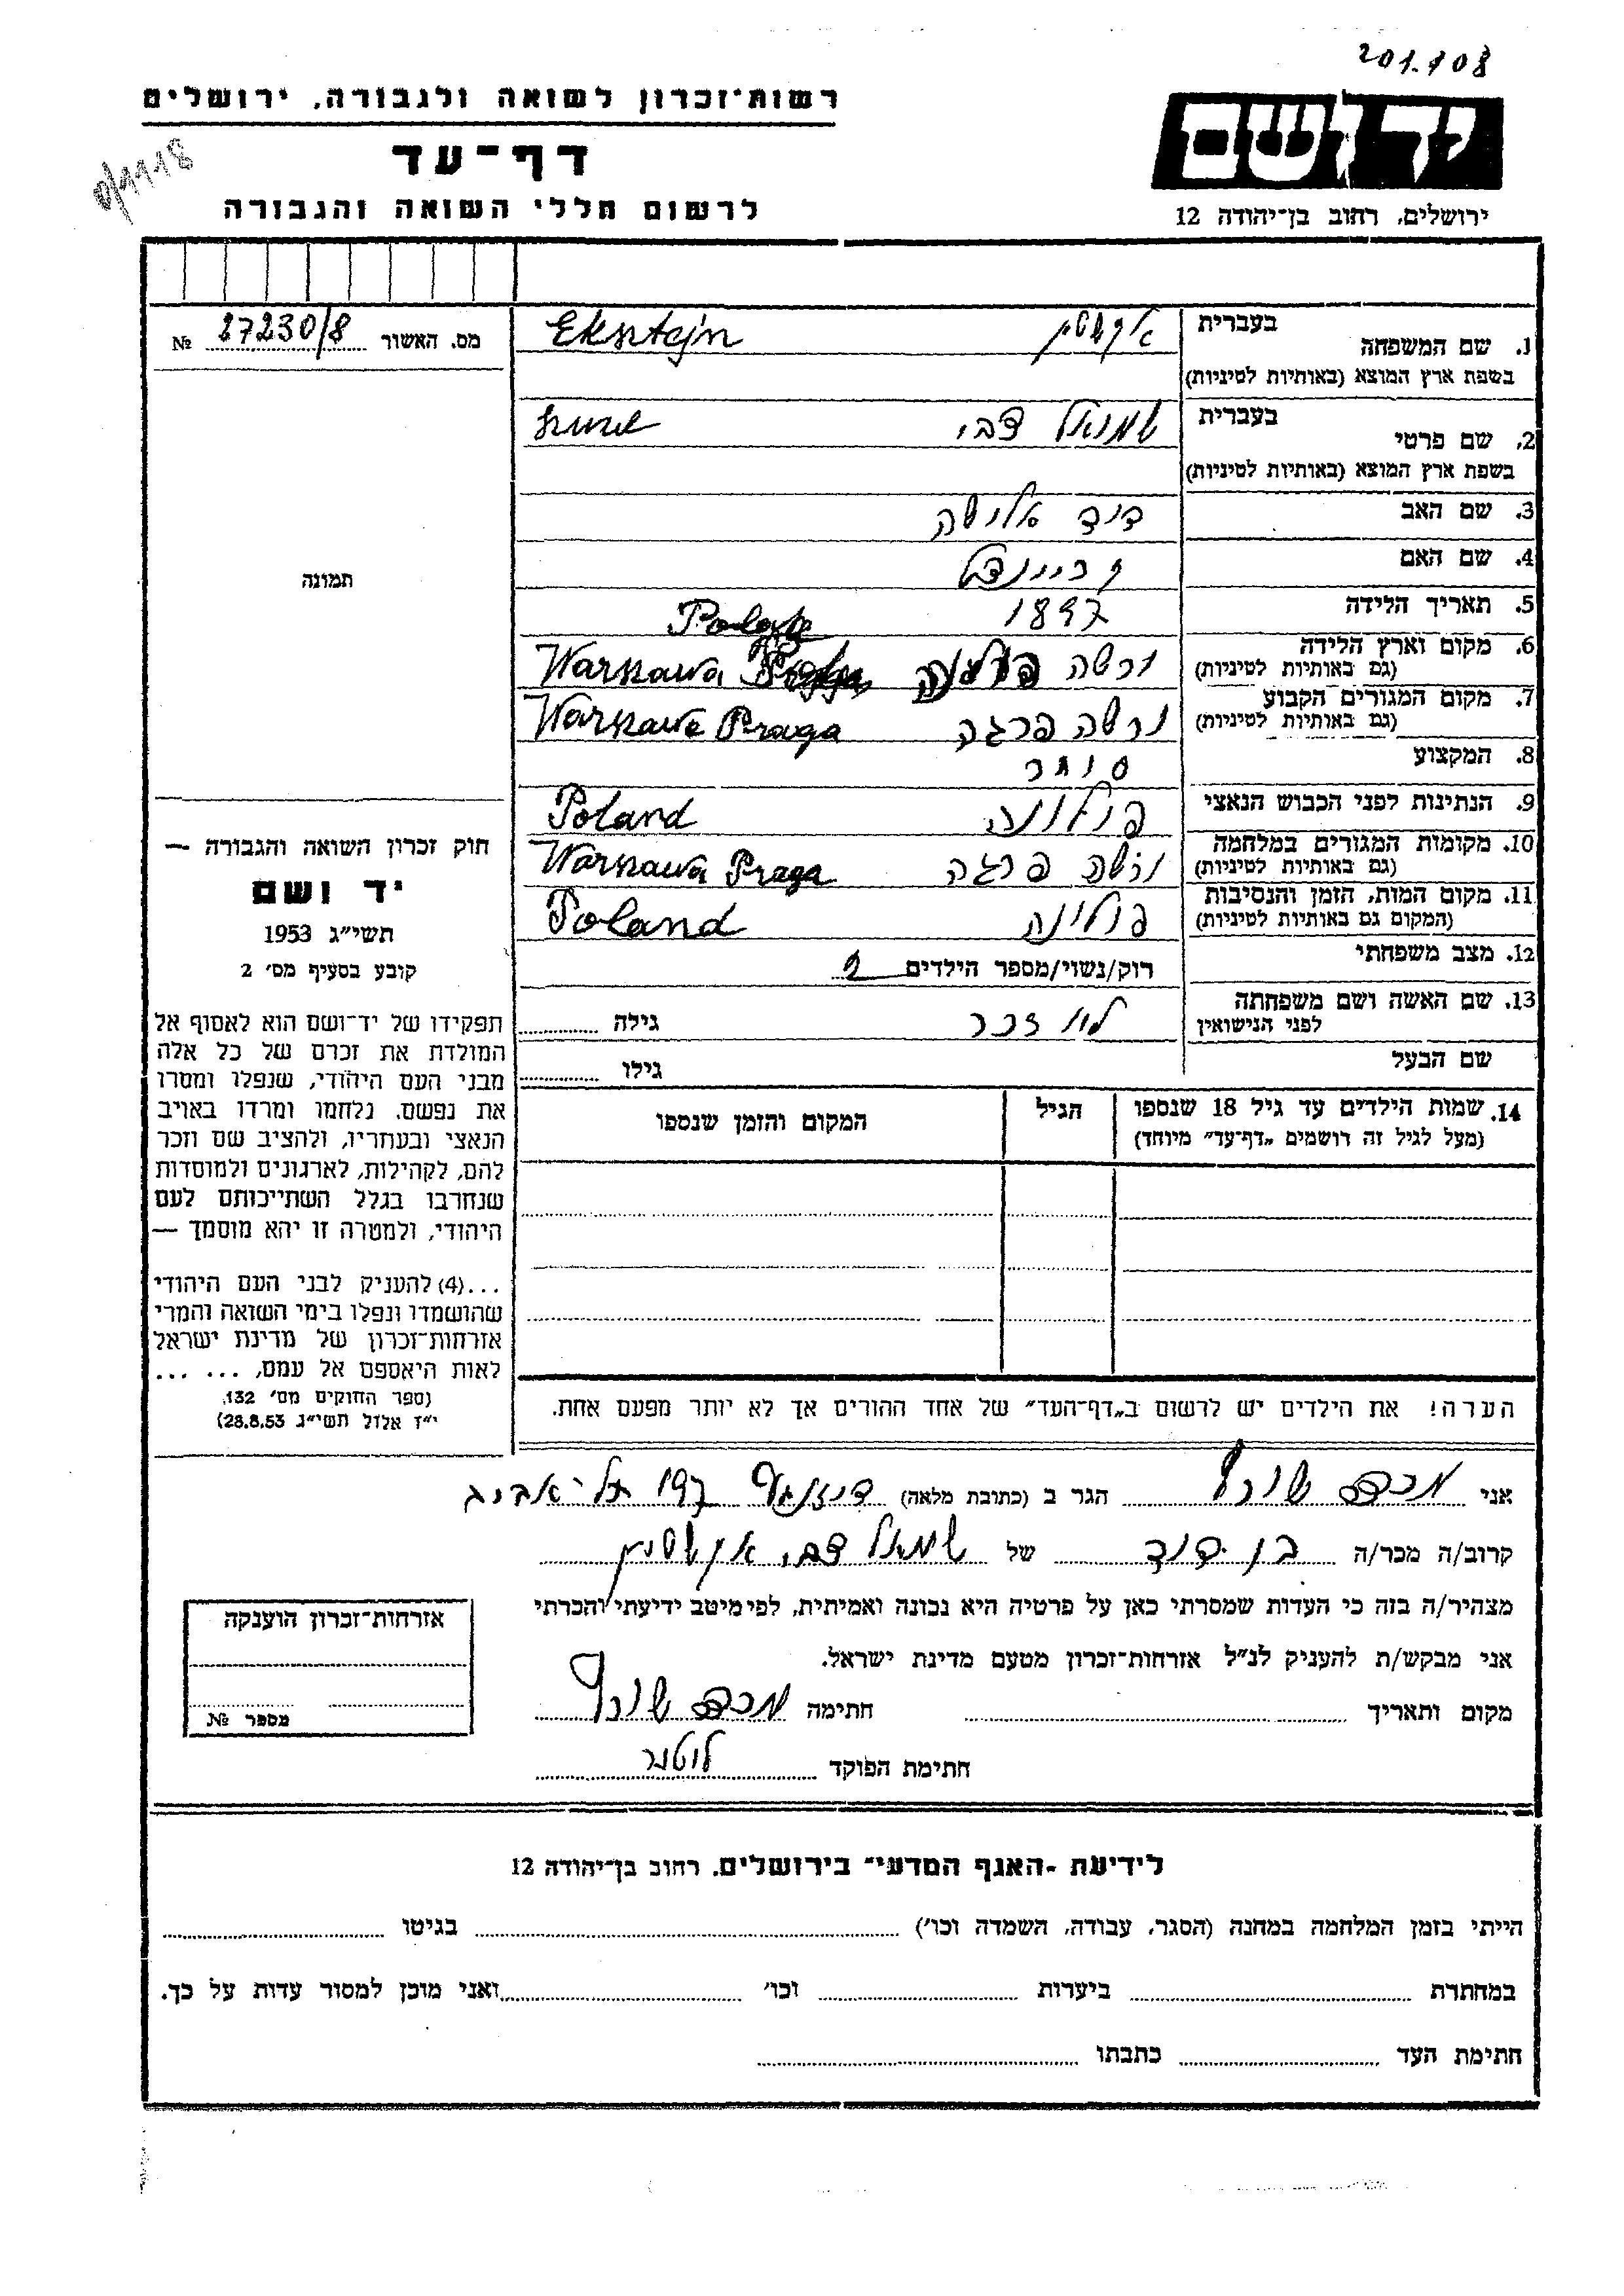 201.108
רשות־זכרון לשואה ולגבורה, ירושלים
יד ושם
דף־עד
לרשום חללי השואה והגבורה
ירושלים, רחוב בן־יהודה 12
מס. האשור № 27230/8
1. שם המשפחה בעברית אקשטין Eksztejn
בשפת ארץ המוצא (באותיות לטיניות)
2. שם פרטי בעברית שמואל צבי
בשפת ארץ המוצא (באותיות לטיניות)
3. שם האב דוד אלישה
4. שם האם
5. תאריך הלידה 1897
6. מקום וארץ הלידה ורשה Warszawa
(גם באותיות לטיניות)
7. מקום המגורים הקבוע ורשה פרגה Warszawa Praga
(גם באותיות לטיניות)
8. המקצוע סוחר
9. הנתינות לפני הכבוש הנאצי פולונה Poland
10. מקומות המגורים במלחמה ורשה פרגה Warszawa Praga
(גם באותיות לטיניות)
11. מקום המות, הזמן והנסיבות פולונה Poland
(המקום גם באותיות לטיניות)
12. מצב משפחתי רוק/נשוי/מספר הילדים 2
13. שם האשה ושם משפחתה גילה
לפני הנישואין
שם הבעל גילו
14. שמות הילדים עד גיל 18 שנספו הגיל המקום והזמן שנספו
(מעל לגיל זה רושמים „דף־עד” מיוחד)
תמונה
חוק זכרון השואה והגבורה —
יד ושם
תשי״ג 1953
קובע בסעיף מס׳ 2
תפקידו של יד־ושם הוא לאסוף אל
המולדת את זכרם של כל אלה
מבני העם היהודי, שנפלו ומסרו
את נפשם, נלחמו ומרדו באויב
הנאצי ובעוזריו, ולהציב שם וזכר
להם, לקהילות, לארגונים ולמוסדות
שנחרבו בגלל השתייכותם לעם
היהודי, ולמטרה זו יהא מוסמך —
...(4) להעניק לבני העם היהודי
שהושמדו ונפלו בימי השואה והמרי
אזרחות־זכרון של מדינת ישראל
לאות היאספם אל עמם, ... ...
(ספר החוקים מס׳ 132,
י״ז אלול תשי״ג 28.8.53)
הערה! את הילדים יש לרשום ב„דף־העד” של אחד ההורים אך לא יותר מפעם אחת.
אני מרים שורץ הגר ב (כתובת מלאה) דיזנגוף 197 תל־אביב
קרוב/ה מכר/ה בן דוד של שמואל צבי אקשטין
מצהיר/ה בזה כי העדות שמסרתי כאן על פרטיה היא נכונה ואמיתית, לפי מיטב ידיעתי והכרתי
אני מבקש/ת להעניק לנ״ל אזרחות־זכרון מטעם מדינת ישראל.
מקום ותאריך חתימה מרים שורץ
חתימת הפוקד
אזרחות־זכרון הוענקה
מספר №
לידיעת -האגף המדעי־ בירושלים, רחוב בן־יהודה 12
הייתי בזמן המלחמה במחנה (הסגר, עבודה, השמדה וכו׳) בגיטו
במחתרת ביערות וכו׳ ואני מוכן למסור עדות על כך.
חתימת העד כתבתו